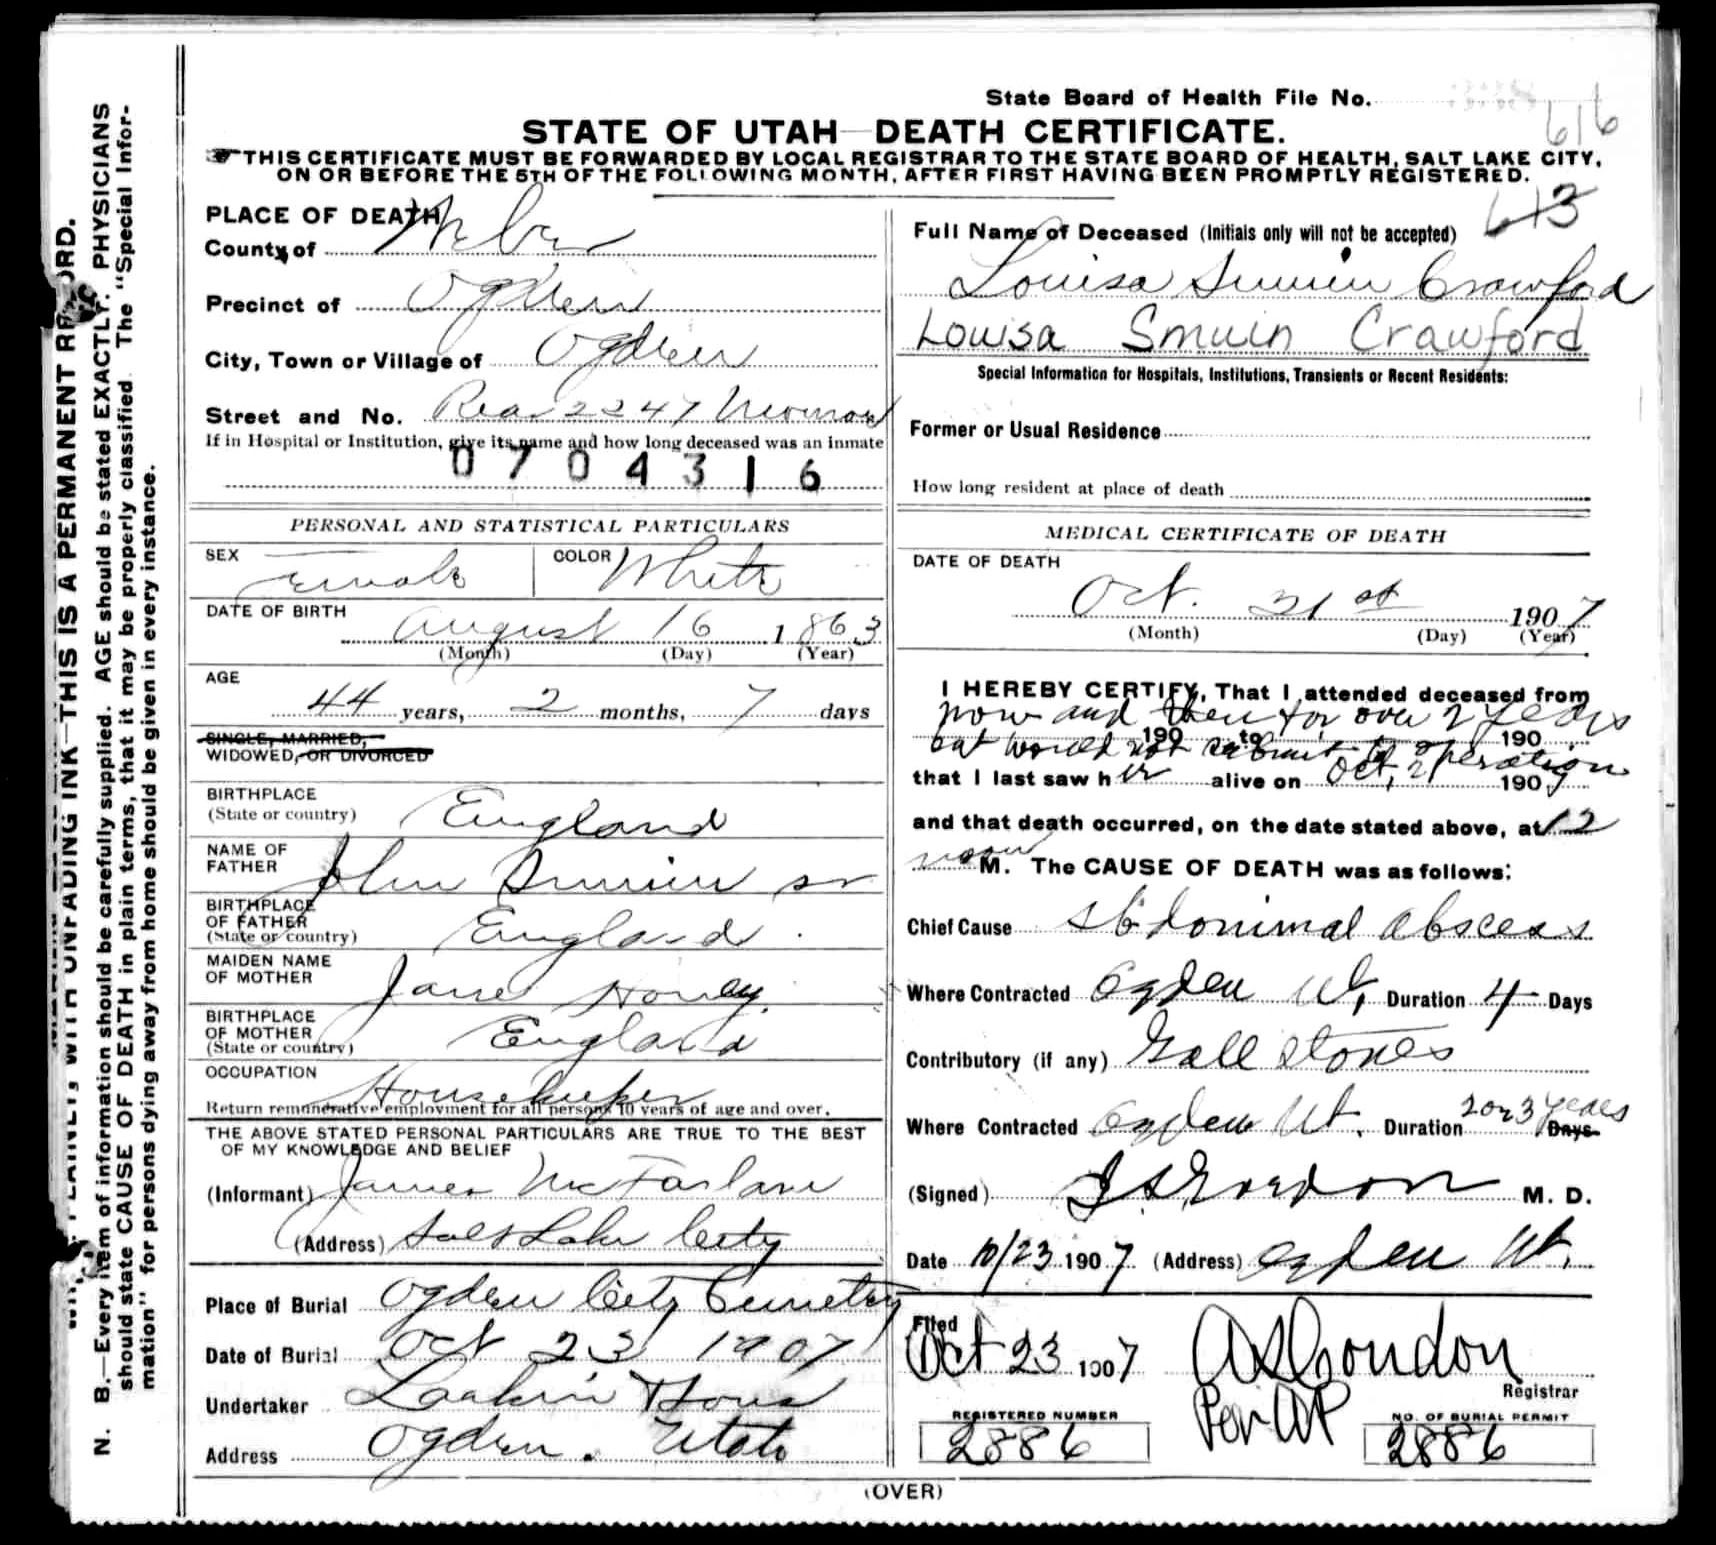 State Board of Health File No.
616
STATE OF UTAH—DEATH CERTIFICATE.
THIS CERTIFICATE MUST BE FORWARDED BY LOCAL REGISTRAR TO THE STATE BOARD OF HEALTH, SALT LAKE CITY,
ON OR BEFORE THE 5TH OF THE FOLLOWING MONTH, AFTER FIRST HAVING BEEN PROMPTLY REGISTERED.
613
PLACE OF DEATH
County of Weber
Precinct of Ogden
City, Town or Village of Ogden
Street and No. Rear 2247 Monroe
If in Hospital or Institution, give its name and how long deceased was an inmate
0704316
PERSONAL AND STATISTICAL PARTICULARS
SEX Female COLOR White
DATE OF BIRTH
August 16 1863
(Month) (Day) (Year)
AGE
44 years, 2 months, 7 days
SINGLE, MARRIED,
WIDOWED, OR DIVORCED
BIRTHPLACE
(State or country) England
NAME OF
FATHER John Smuin sr
BIRTHPLACE
OF FATHER
(State or country) England
MAIDEN NAME
OF MOTHER Jane
BIRTHPLACE
OF MOTHER
(State or country) England
OCCUPATION Housekeeper
Return remunerative employment for all persons 10 years of age and over.
THE ABOVE STATED PERSONAL PARTICULARS ARE TRUE TO THE BEST
OF MY KNOWLEDGE AND BELIEF
(Informant) James McFarlane
(Address) Salt Lake City
Place of Burial Ogden City Cemetery
Date of Burial Oct 23 1907
Undertaker Larkin
Address Ogden. Utah
Full Name of Deceased (Initials only will not be accepted)
Louisa Smuin Crawford
Louisa Smuin Crawford
Special Information for Hospitals, Institutions, Transients or Recent Residents:
Former or Usual Residence
How long resident at place of death
MEDICAL CERTIFICATE OF DEATH
DATE OF DEATH
Oct. 21st 1907
(Month) (Day) (Year)
I HEREBY CERTIFY, That I attended deceased from
now and then for over 2 years
190 to 190
but would not submit to operation
that I last saw her alive on Oct, 21 1907
and that death occurred, on the date stated above, at 12
noon M. The CAUSE OF DEATH was as follows:
Chief Cause Abdonimal abscess
Where Contracted Ogden Ut, Duration 4 Days
Contributory (if any) Gall stones
Where Contracted Ogden Ut. Duration 2 or 3 years Days
(Signed) Gordon M. D.
Date 10/23 1907 (Address) Ogden Ut.
Filed
Oct 23 1907 A S Condon
Registrar
Per AP
REGISTERED NUMBER
2886
NO. OF BURIAL PERMIT
2886
(OVER)
WITH UNFADING INK—THIS IS A PERMANENT RECORD.
N. B.—Every item of information should be carefully supplied. AGE should be stated EXACTLY. PHYSICIANS
should state CAUSE OF DEATH in plain terms, that it may be properly classified. The "Special Infor-
mation" for persons dying away from home should be given in every instance.